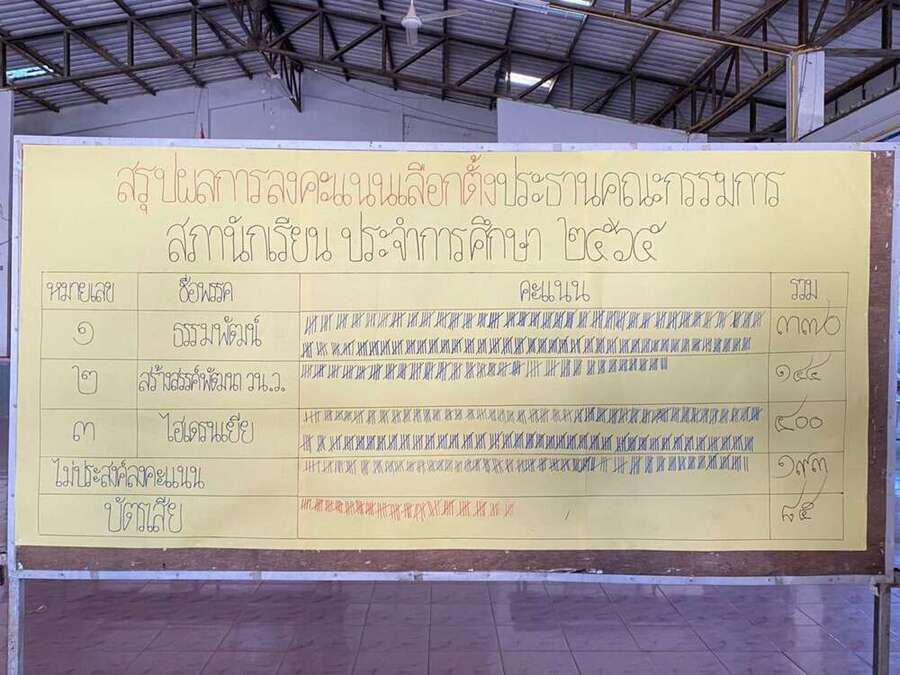 สรุปผลการลงคะแนนเลือกตั้งประธานคณะกรรมการ
สภานักเรียน ประจำการศึกษา ๒๕๖๕
หมายเลข ชื่อพรรค คะแนน รวม
๑ ธรรมพัฒน์
๒ สร้างสรรค์พัฒนา วน.ว.
๓ ไฮเดรนเยีย ๔๐๐
ไม่ประสงค์ลงคะแนน ๑๙๓
บัตรเสีย ๘๕